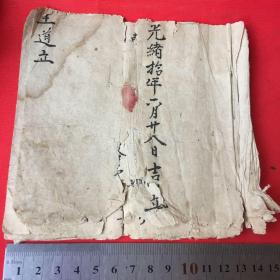 光緒拾年二月廿八日吉立
王道立
1 2 3 4 5 6 7 8 9 10 11 12 13 14 15